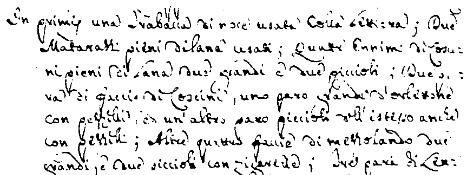 In primis una Trabacca di noce usata colla lettiera; Due
Mattaratzi pieni di lana usati; Quatri Ennimi di Coscini
pieni di lana due grandi è due piccioli; Due
di faccie di Coscini, uno paro grandi d'orletto
con pezzilli, èd un'altro paro piccioli dell'istesso anche
con pezzilli; Altre quattro faccie di mezzolando due
grandi, è due piccioli con zigarelle; Tre para di Len-